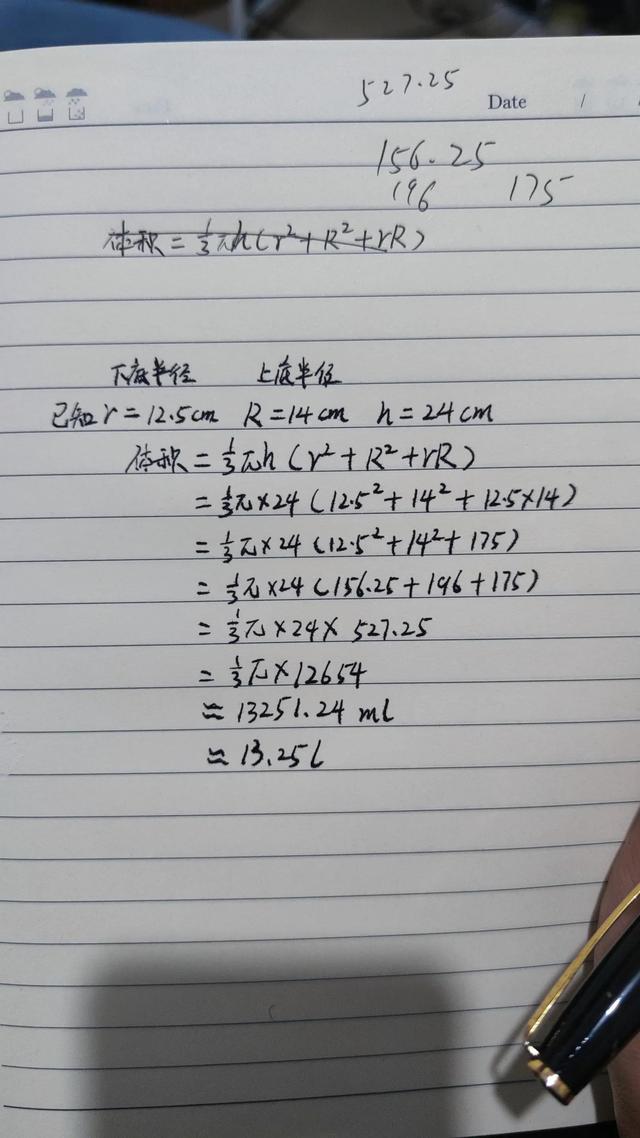 527.25
Date /
156.25
196 175
体积 = 1/3πh(r²+R²+rR)
下底半径 上底半径
已知 r = 12.5cm R = 14cm h = 24cm
体积 = 1/3πh (r²+R²+rR)
= 1/3π×24 (12.5²+14²+12.5×14)
= 1/3π×24 (12.5²+14²+175)
= 1/3π×24 (156.25+196+175)
= 1/3π×24× 527.25
= 1/3π×12654
≈ 13251.24 ml
≈ 13.25l